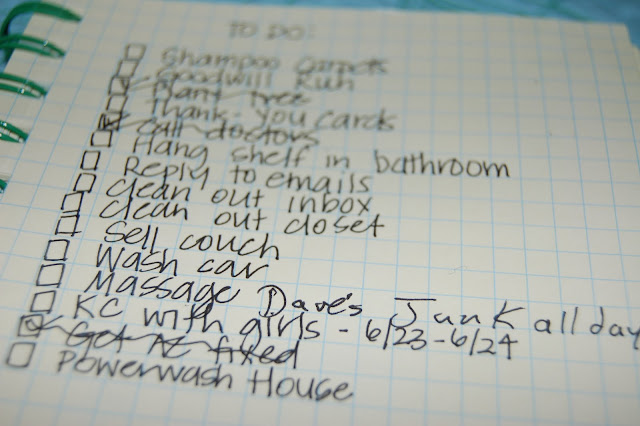 TO DO:
Shampoo Carpets
Goodwill Run
Plant tree
Thank-you cards
Call doctors
Hang shelf in bathroom
Reply to emails
Clean out inbox
Clean out closet
Sell couch
Wash car
Massage Dave's Junk all day
KC with girls - 6/23-6/24
Get AC fixed
Powerwash House